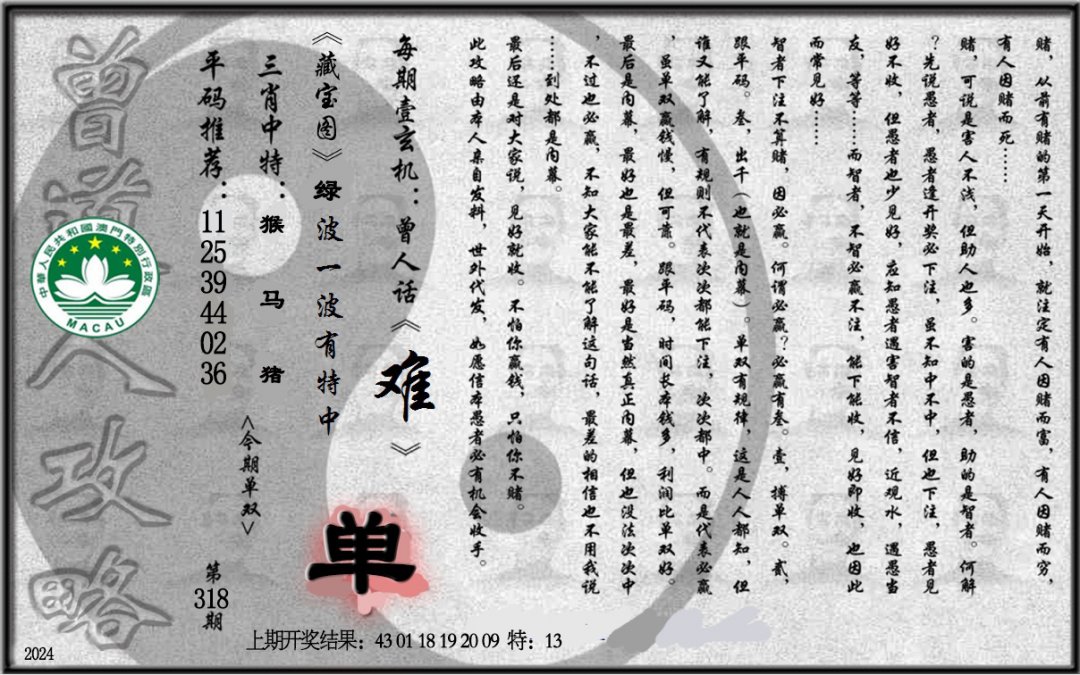 赌，从前有赌的第一天开始，就注定有人因赌而富，有人因赌而穷，
有人因赌而死……
赌，可说是害人不浅，但助人也多。害的是愚者，助的是智者。何解
？先说愚者，愚者逢开奖必下注，虽不知中不中，但也下注，愚者见
好不收，但愚者也少见好，应知愚者遇害智者不信，近观水，遇愚当
友，等等……而智者，不智必赢不注，能下能收，见好即收，也因此
而常见好……
智者下注不算赌，因必赢。何谓必赢？必赢有叁。壹，搏单双。贰，
跟平码。叁，出千（也就是内幕）。单双有规律，这是人人都知，但
谁又能了解，有规则不代表次次都能下注，次次都中。而是代表必赢
，虽单双赢钱慢，但可靠。跟平码，时间长本钱多，利润比单双好。
最后是内幕，最好也是最差，最好是当然真正内幕，但也没法次次中
，不过也必赢，不知大家能不能了解这句话，最差的相信也不用我说
……到处都是内幕。
最后还是对大家说，见好就收。不怕你赢钱，只怕你不赌。
此攻略由本人亲自发料，世外代发，如愿信本愚者必有机会收手。
每期壹玄机：曾人话《难》
《藏宝图》绿波一波有特中
三肖中特：猴 马 猪
平码推荐：11 25 39 44 02 36
<今期单双>
单
第318期
曾道人攻略
中華人民共和國澳門特別行政區
MACAU
上期开奖结果：43 01 18 19 20 09 特：13
2024